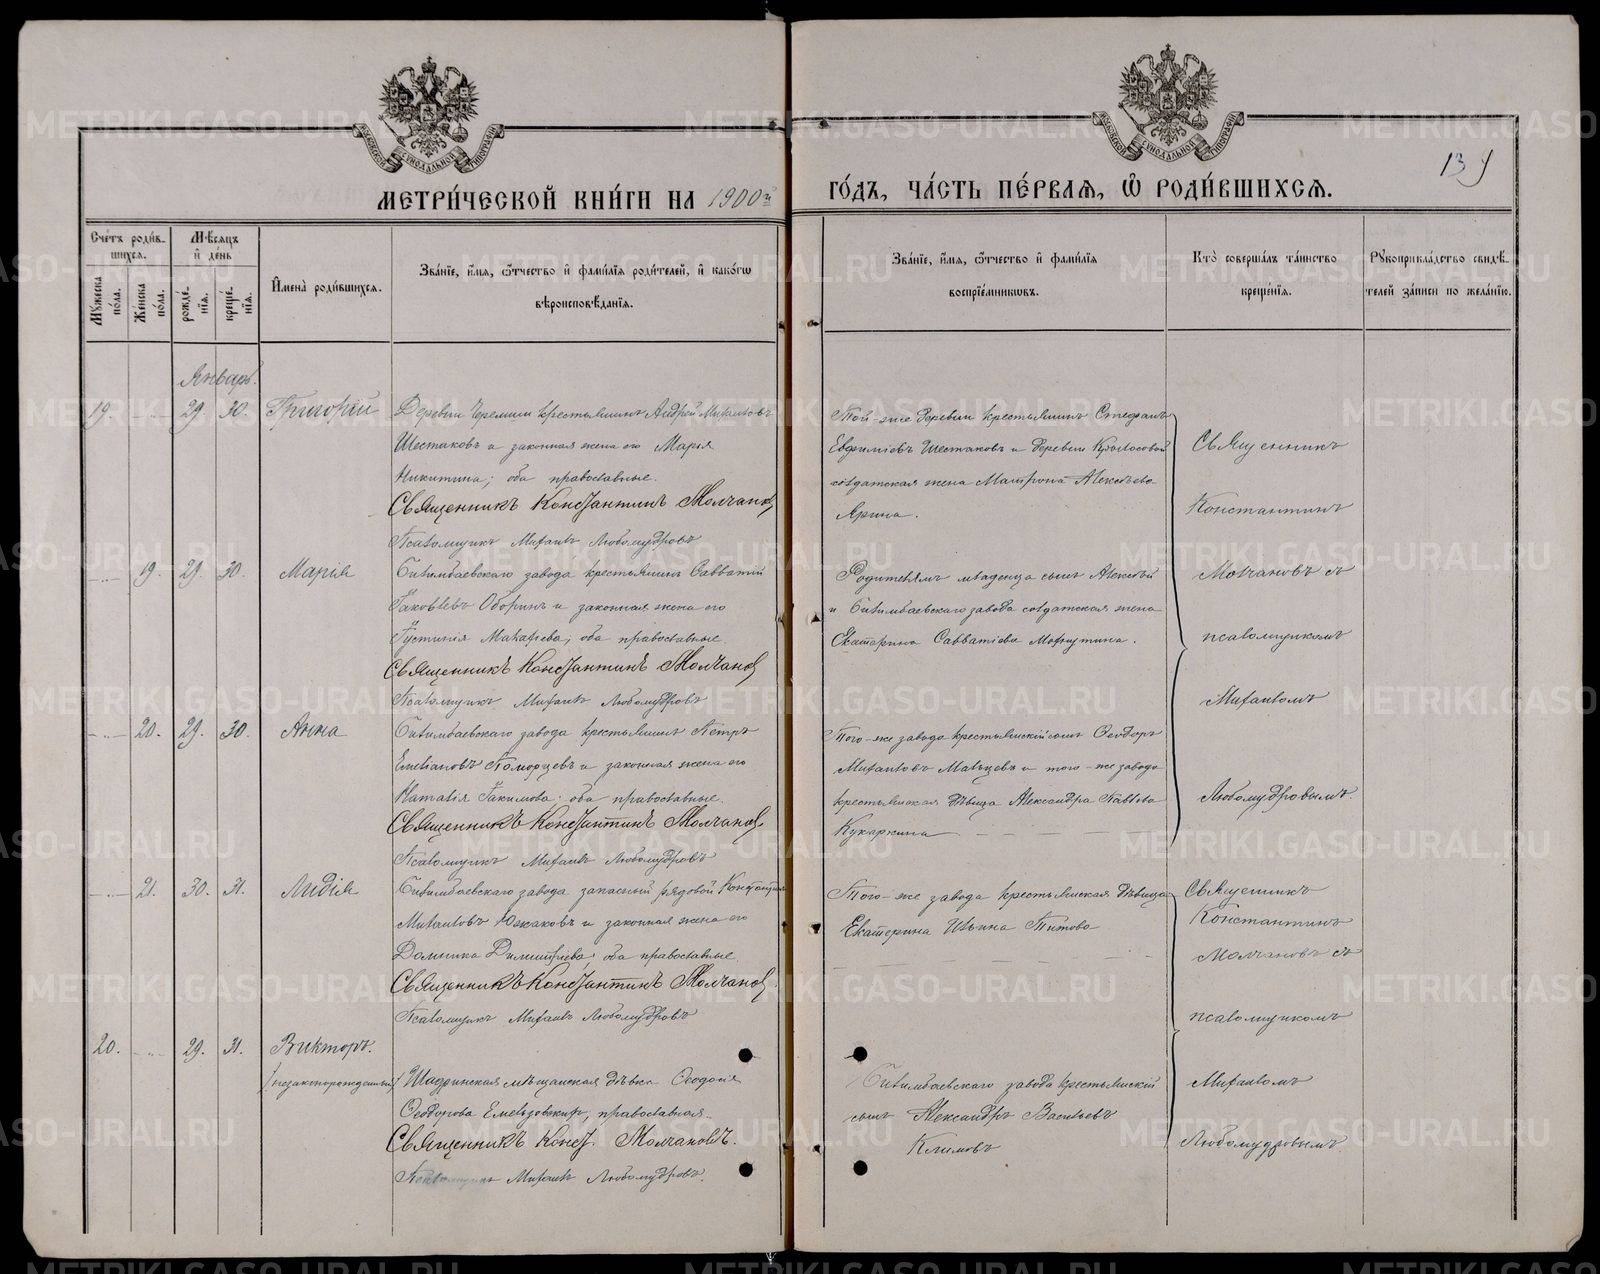 МОСКОВСКОЙ СѴНОДАЛЬНОЙ ТИПОГРАФІИ
МОСКОВСКОЙ СѴНОДАЛЬНОЙ ТИПОГРАФІИ
13
МЕТРИ́ЧЕСКОЙ КНИ́ГИ НА 1900й
ГО́ДЪ, ЧА́СТЬ ПЕ́РВАЯ, Ѽ РОДИ́ВШИХСЯ.
Сче́тъ роди́в-
шихся.
Мꙋжеска по́ла.
Же́нска по́ла.
Мѣ́сяцъ
и́ де́нь
рожде́-
нїя.
креще́-
нїя.
И҆мена̀ роди́вшихся.
Зва́нїе, и҆́мя, ѻ҆́тчество и҆ фами́лїя роди́телей, и҆ како́гѡ
вѣроисповѣ́данїя.
Зва́нїе, и҆́мя, ѻ҆́тчество и҆ фами́лїя
воспрїе́мникѡвъ.
Кто̀ соверша́лъ та́инство
креще́нїя.
Рꙋкоприкла́дство свидѣ́-
телей за́писи по жела́нїю.
Январь.
19. 29. 30. Григорій
Деревни Черемши крестьянинъ Андрей Михаиловъ
Шестаковъ и законная жена его Марія
Никитина; оба православные.
Священникъ Константинъ Молчановъ
Псаломщикъ Михаилъ Любомудровъ
Той-же деревни крестьянинъ Стефанъ
Евфиміевъ Шестаковъ и деревни Крылосовой
солдатская жена Матрона Алексѣева
Ярина.
Священникъ
Константинъ
Молчановъ съ
псаломщикомъ
Михаиломъ
Любомудровымъ.
19. 29. 30. Марія
Билимбаевскаго завода крестьянинъ Савватій
Іаковлевъ Оборинъ и законная жена его
Іустинія Макарьева; оба православные
Священникъ Константинъ Молчановъ
Псаломщикъ Михаилъ Любомудровъ
Родителямъ младенца сынъ Алексѣй
и Билимбаевскаго завода солдатская жена
Екатерина Савватіева
20. 29. 30. Анна
Билимбаевскаго завода крестьянинъ Петръ
Емеліановъ Поморцевъ и законная жена его
Наталія Іакимова; оба православные.
Священникъ Константинъ Молчановъ.
Псаломщикъ Михаилъ Любомудровъ
Того-же завода крестьянскій сынъ Ѳеодоръ
Михаиловъ Мальцевъ и того-же завода
крестьянская дѣвица Александра Павлова
Кукаркина
21. 30. 31. Лидія
Билимбаевскаго завода запасный рядовой Константинъ
Михаиловъ Южаковъ и законная жена его
Домника Димитріева; оба православные.
Священникъ Константинъ Молчановъ.
Псаломщикъ Михаилъ Любомудровъ
Того-же завода крестьянская дѣвица
Екатерина Ильина Титова
Священникъ
Константинъ
Молчановъ съ
псаломщикомъ
Михаиломъ
Любомудровымъ.
20. 29. 31. Викторъ.
(незаконорожденный)
Шадринская мѣщанская дѣвка Ѳеодосія
Ѳеодорова православная.
Священникъ Конст. Молчановъ.
Псаломщикъ Михаилъ Любомудровъ.
Билимбаевскаго завода крестьянскій
сынъ Александръ Васильевъ
Климовъ